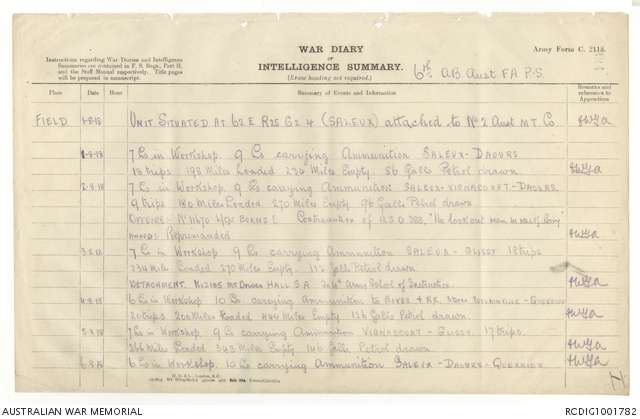 WAR DIARY
OR
INTELLIGENCE SUMMARY.
(Erase heading not required.)
Army Form C. 2118.
Instructions regarding War Diaries and Intelligence
Summaries are contained in F. S. Regs., Part II.
and the Staff Manual respectively. Title pages
will be prepared in manuscript.
6th AB. Aust F A P.S.
Place Date Hour Summary of Events and Information Remarks and references to Appendices
FIELD 1-8-18 UNIT SITUATED AT 62 E R25 G2 4 (SALEUX) attached to No 2 Aust M.T. Co
-8-18 7 Lo in Workshop. 9 Lo carrying Ammunition SALEUX-DAOURS
18 trips 198 Miles Loaded 234 Miles Empty. 86 Galls Petrol drawn
2-8-18 7 Lo in Workshop. 9 Lo carrying Ammunition SALEUX-VIGNACOURT-DAOURS.
9 trips 180 Miles Loaded 270 Miles Empty 96 Galls Petrol drawn
OFFENCE - No 11670 BURNS E Contravention of "No lookout man in rear of lorry"
AWARD Reprimanded
3-8-18 7 Lo in Workshop 9 Lo carrying Ammunition SALEUX - GLISY 18 trips
234 Mile Loaded 270 Miles Empty. 112 Galls Petrol drawn
DETACHMENT. HALL S.A. Army School of Instruction
4-8-18 6 Lo in Workshop 10 Lo carrying Ammunition to
20 trips 200 Miles Loaded Miles Empty 126 Galls Petrol drawn.
5-8-18 7 Lo in Workshop. 9 Lo carrying Ammunition VIGNACOURT - GLISY. 17 trips.
266 Mile Loaded 343 Miles Empty 146 Galls Petrol drawn
6-8-18 6 Lo in Workshop. 10 Lo carrying Ammunition SALEUX - DAOURS - QUERRIEU
AUSTRALIAN WAR MEMORIAL
RCDIG1001782